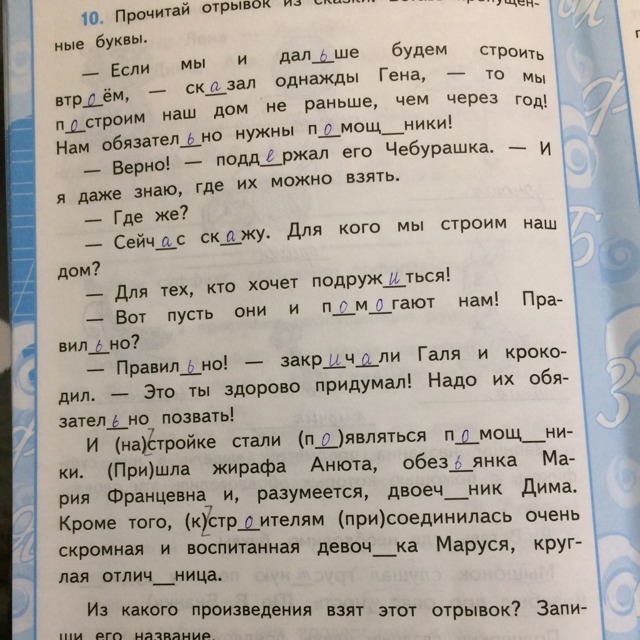 10. Прочитай отрывок из сказки.
ные буквы.
— Если мы и дальше будем строить
втроём, — сказал однажды Гена, — то мы
построим наш дом не раньше, чем через год!
Нам обязательно нужны помощ__ники!
— Верно! — поддержал его Чебурашка. — И
я даже знаю, где их можно взять.
— Где же?
— Сейчас скажу. Для кого мы строим наш
дом?
— Для тех, кто хочет подружиться!
— Вот пусть они и помогают нам! Пра-
вильно?
— Правильно! — закричали Галя и кроко-
дил. — Это ты здорово придумал! Надо их обя-
зательно позвать!
И (на)стройке стали (по)являться помощ__ни-
ки. (При)шла жирафа Анюта, обезьянка Ма-
рия Францевна и, разумеется, двоеч__ник Дима.
Кроме того, (к)строителям (при)соединилась очень
скромная и воспитанная девоч__ка Маруся, круг-
лая отлич__ница.
Из какого произведения взят этот отрывок? Запи-
ши его название.